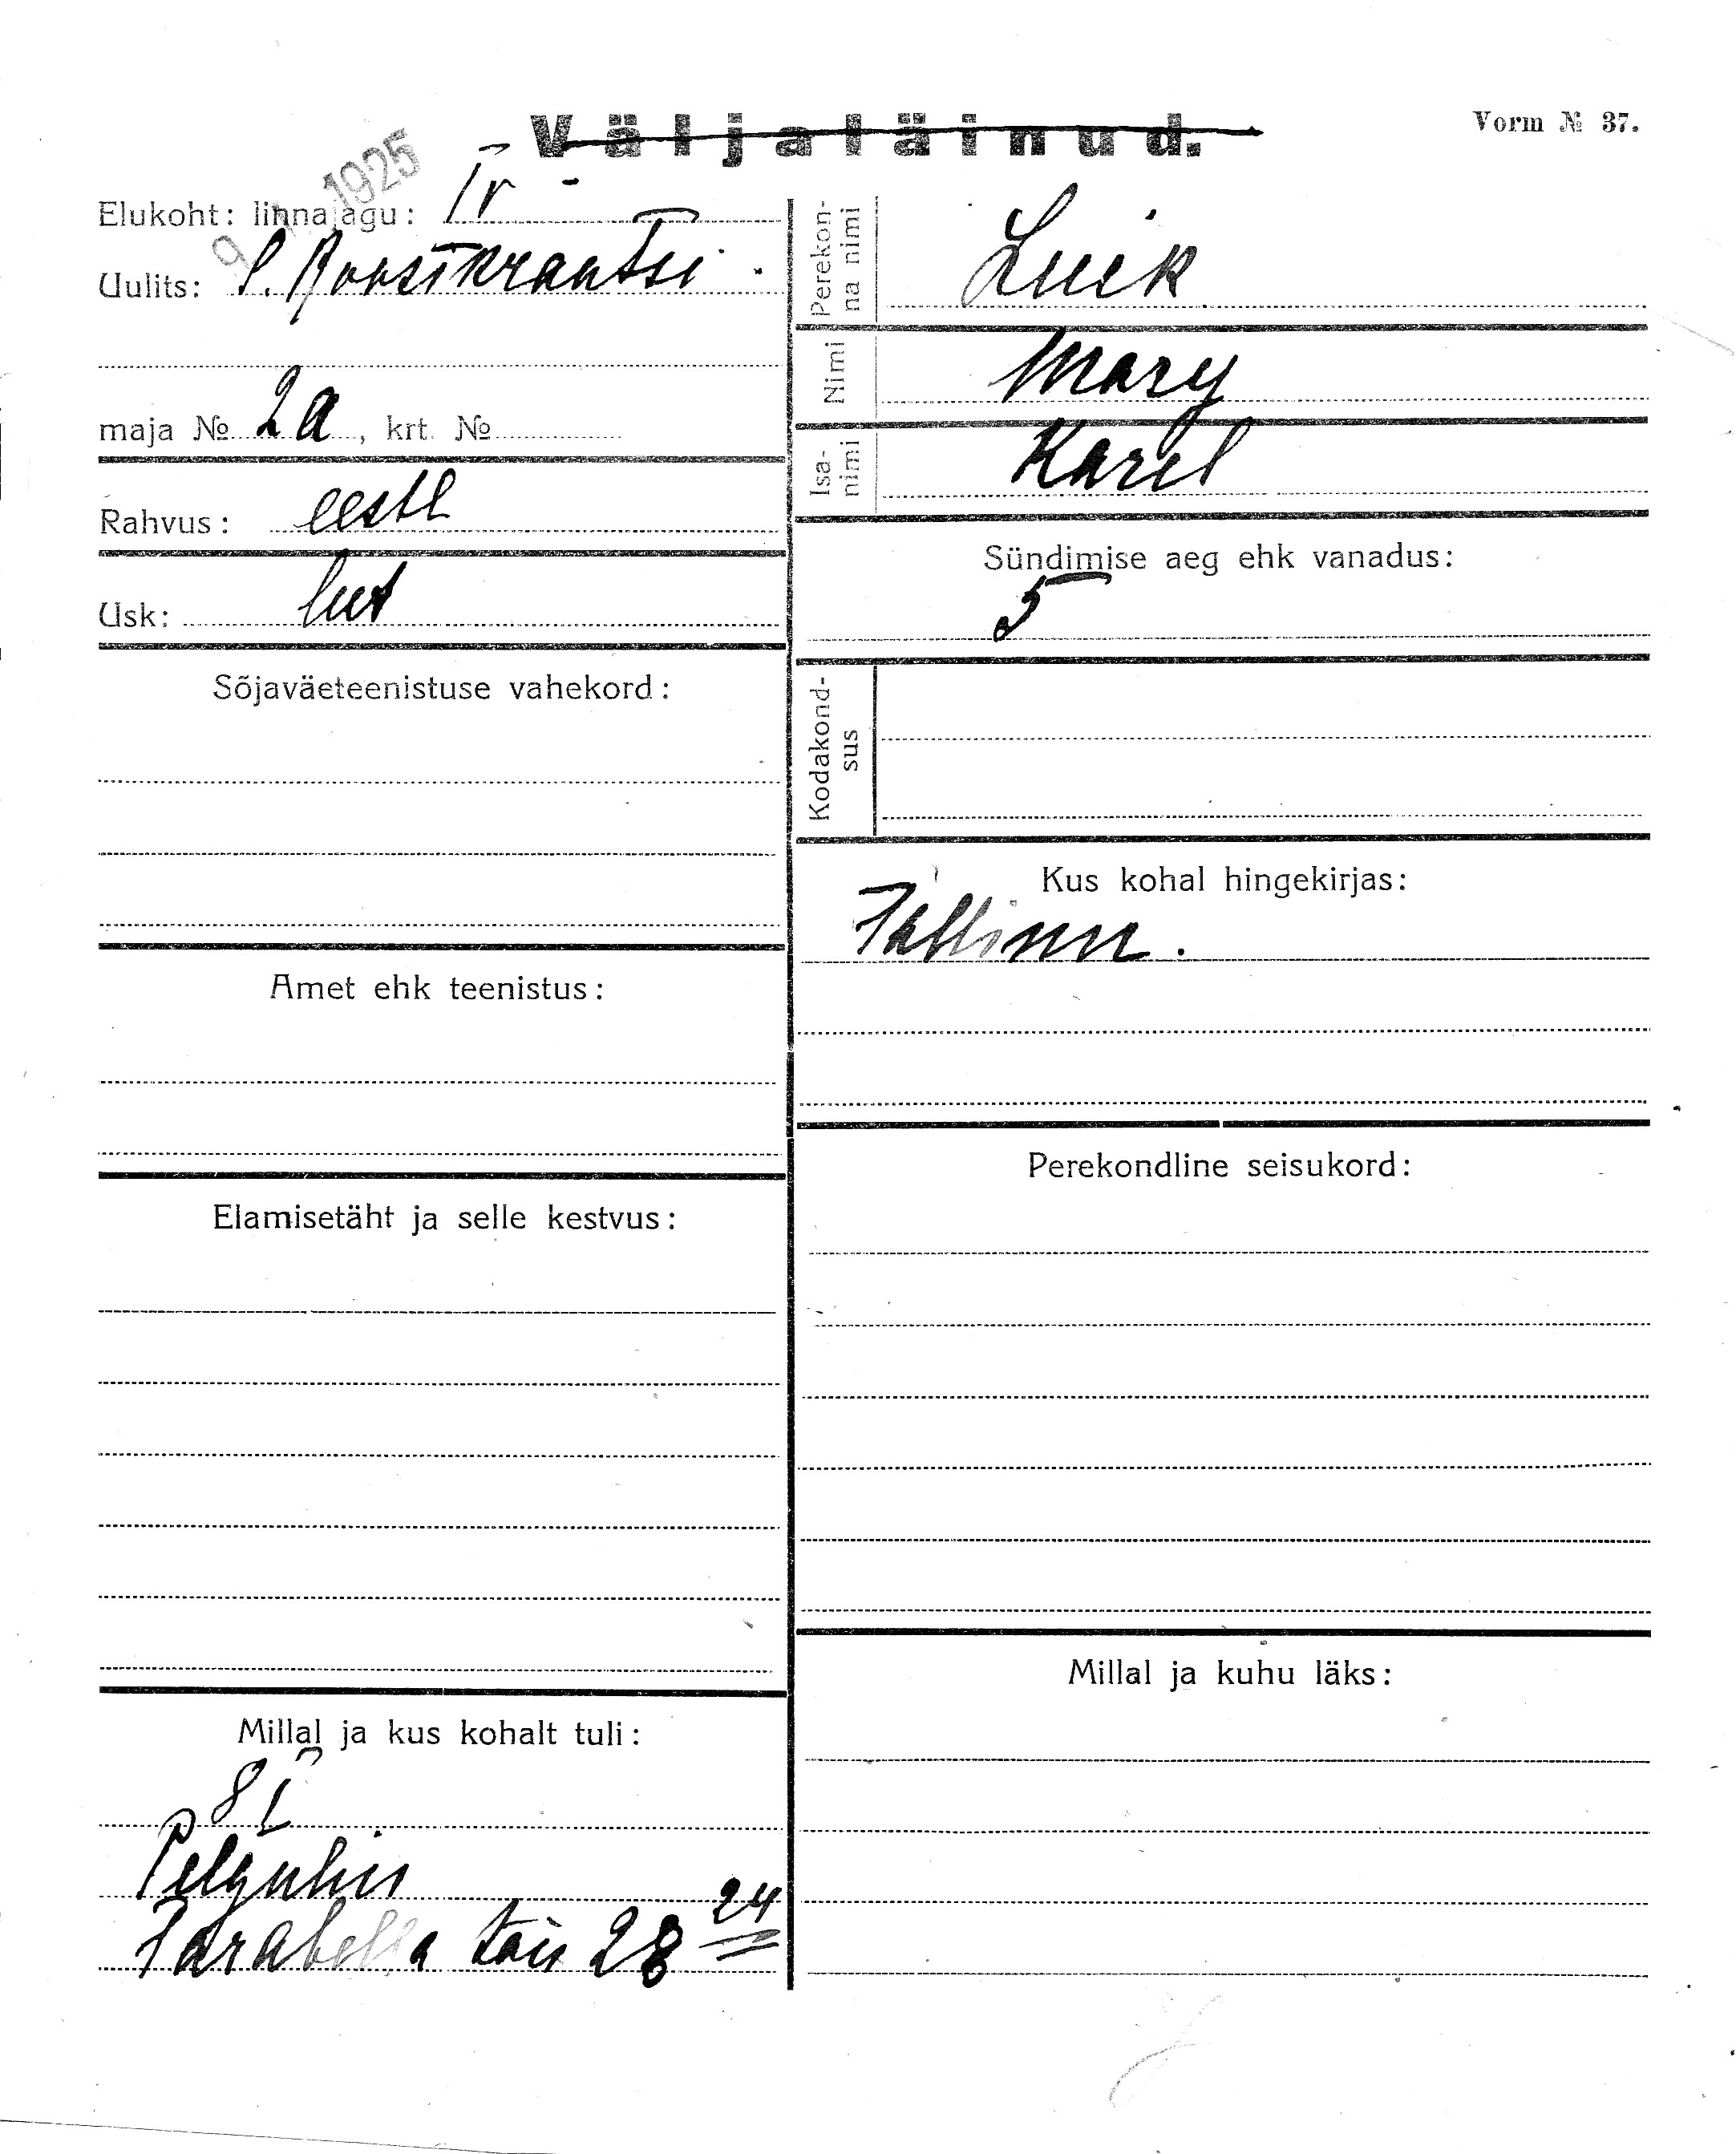 Väljaläinud.
Vorm № 37.
9. 1. 1925
Elukoht: linnajagu: IV
Uulits: S. Roosikrantsi.
maja № 2a, krt. №
Rahvus: eestl
Usk: lut
Sõjaväeteenistuse vahekord:
Amet ehk teenistus:
Elamisetäht ja selle kestvus:
Millal ja kus kohalt tuli:
8 I
Pelgulin
Parabella täis 28 24
Perekon-
na nimi
Luik
Nimi
Mary
Isa-
nimi
Karel
Sündimise aeg ehk vanadus:
5
Kodakond-
sus
Kus kohal hingekirjas:
Tallinn.
Perekondline seisukord:
Millal ja kuhu läks: